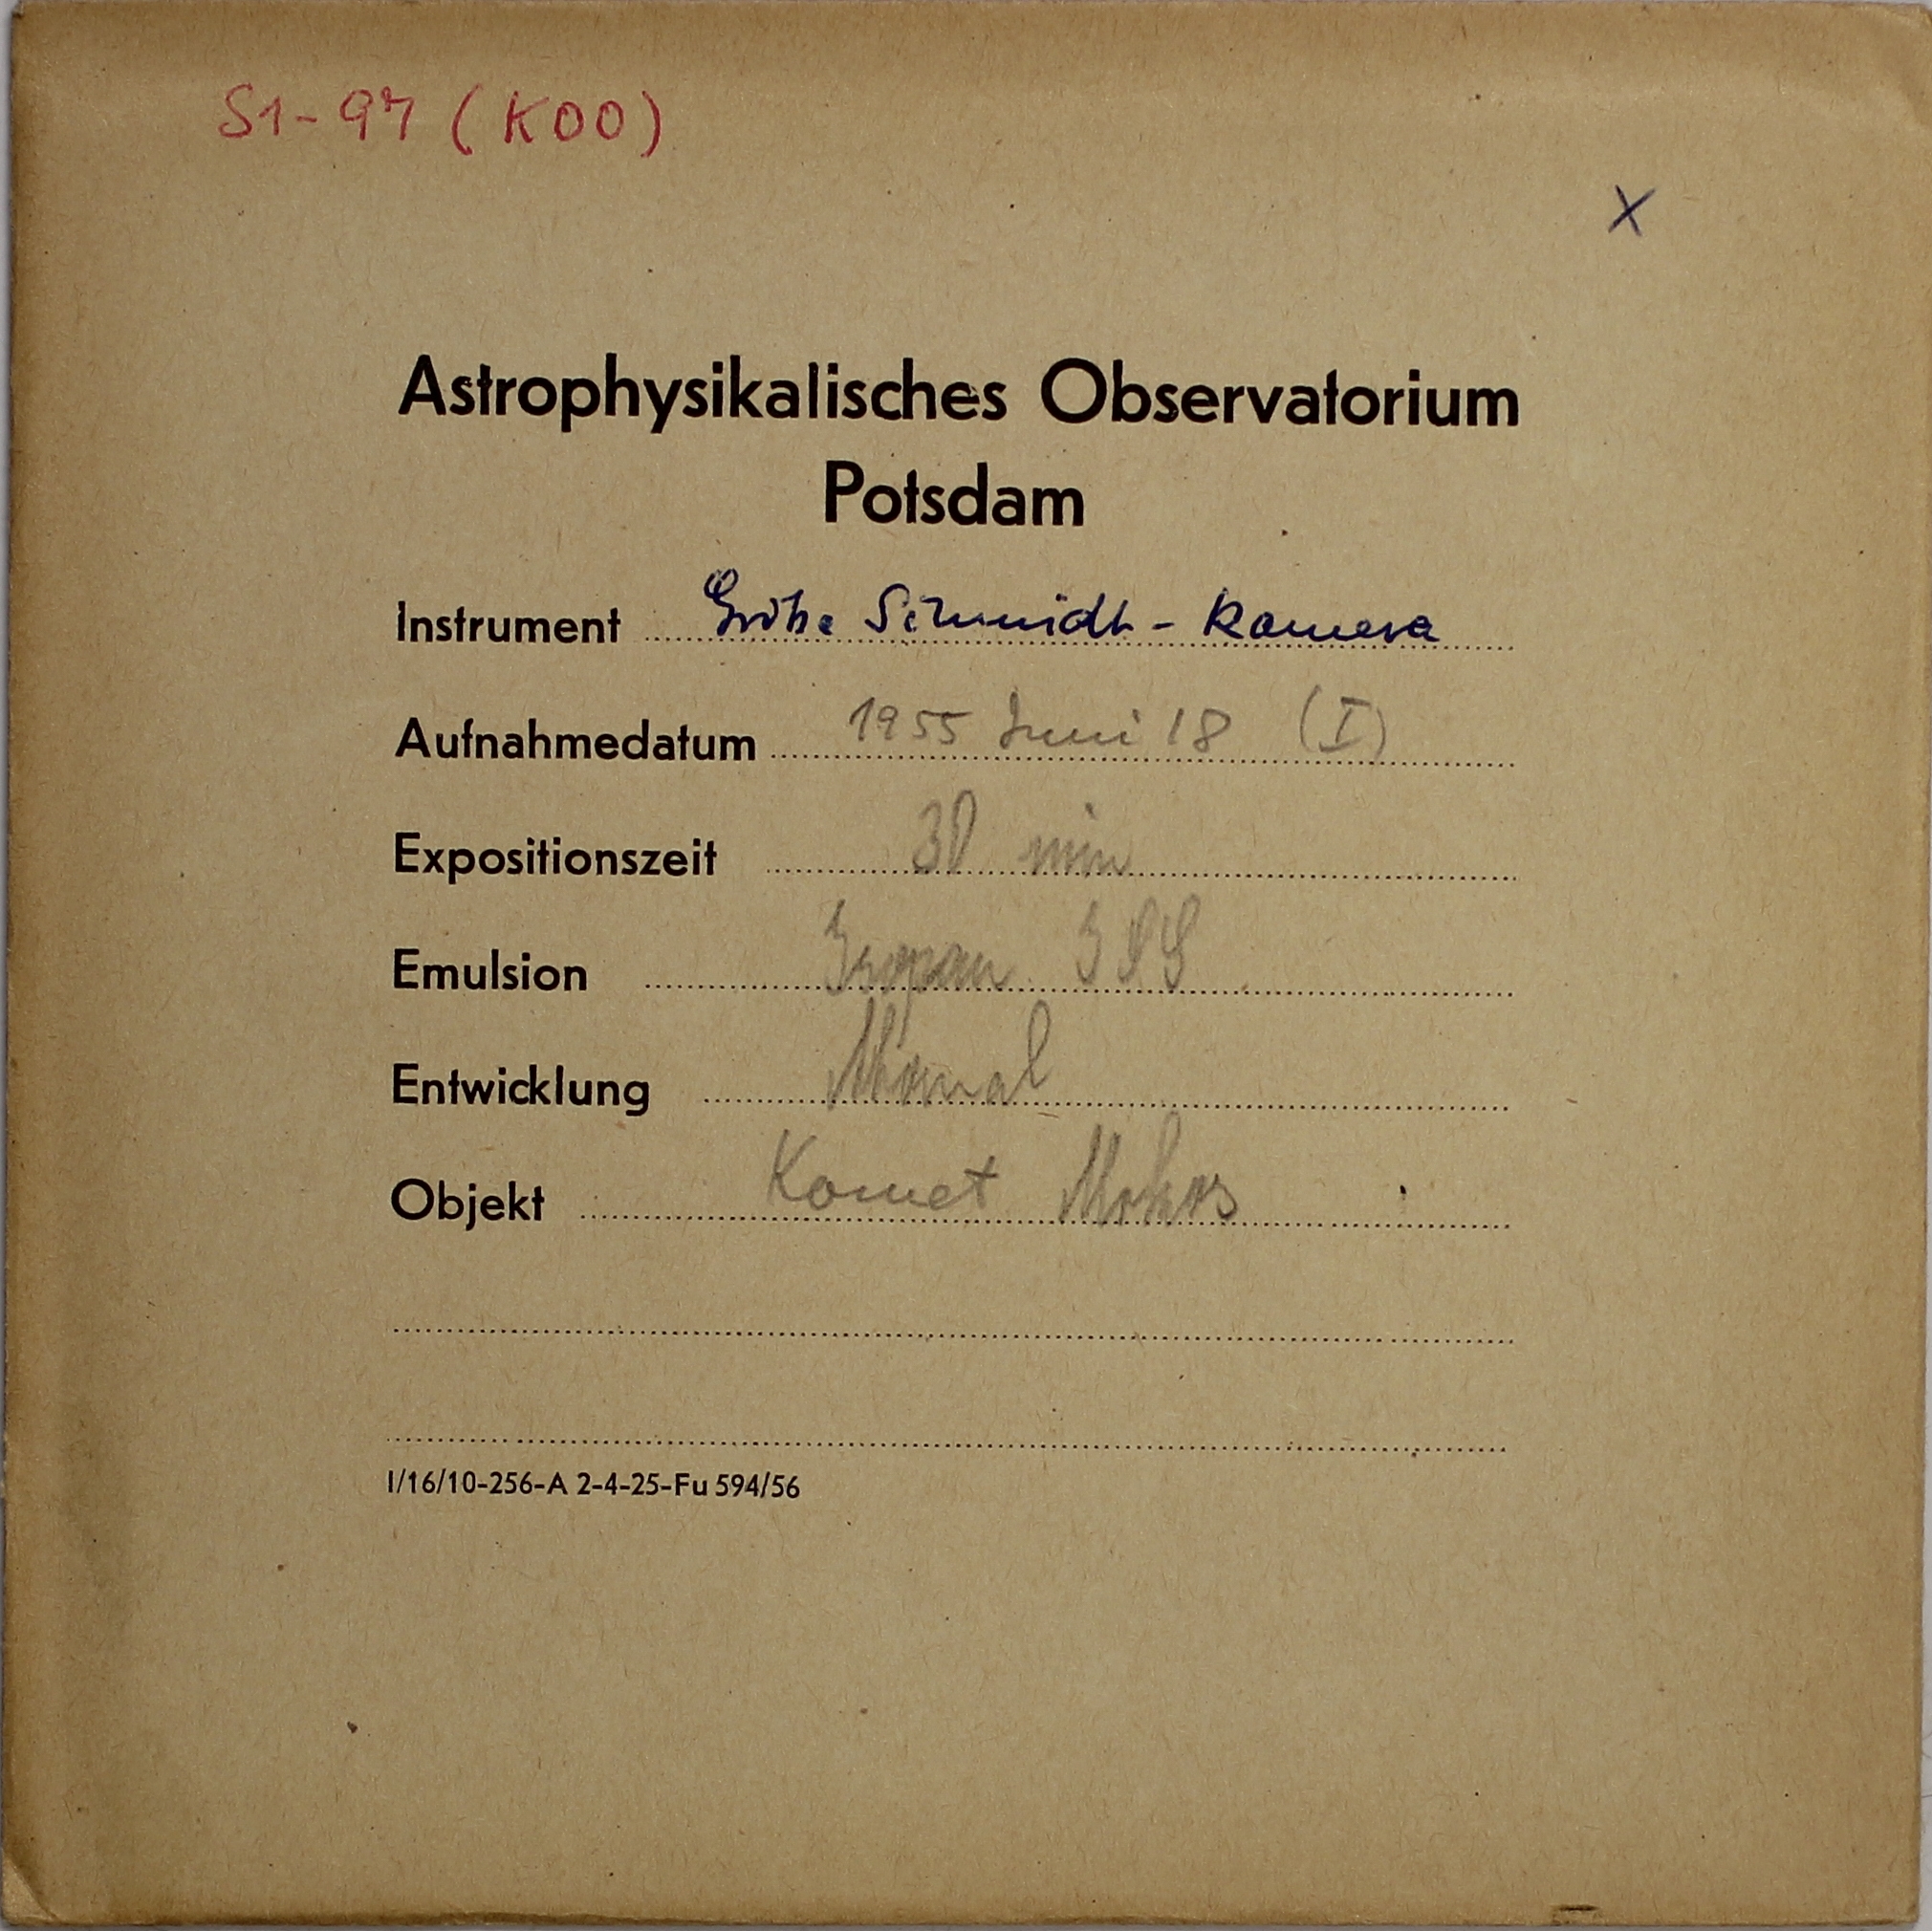 S1-97 (KOO)
X
Astrophysikalisches Observatorium
Potsdam
Instrument Große Schmidt - Kamera
Aufnahmedatum 1955 Juni 18 (I)
Expositionszeit 30 min
Emulsion Isopan ISS
Entwicklung Normal
Objekt Komet Mrkos
I/16/10-256-A 2-4-25-Fu 594/56